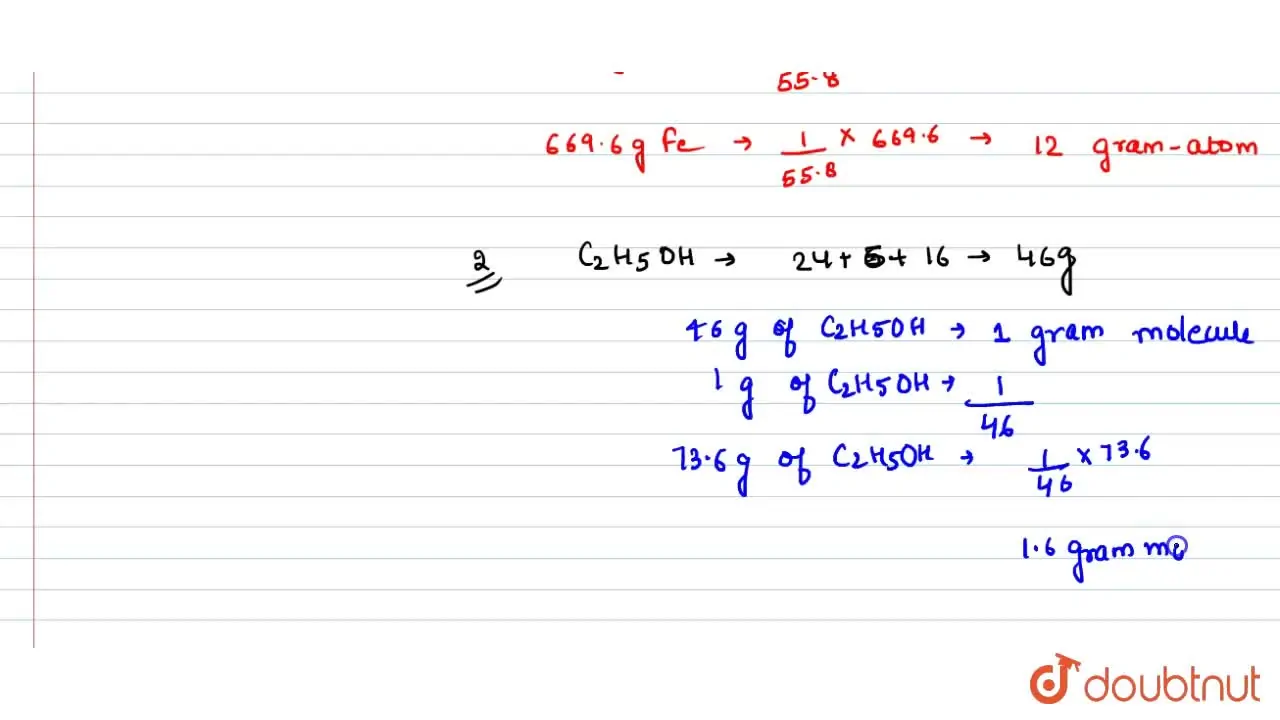 55.8
669.6 g Fe → 1/55.8 × 669.6 → 12 gram-atom
2 C2H5OH → 24 + 6 + 16 → 46g
46 g of C2H5OH → 1 gram molecule
1 g of C2H5OH → 1/46
73.6 g of C2H5OH → 1/46 × 73.6
1.6 gram mo
doubtnut